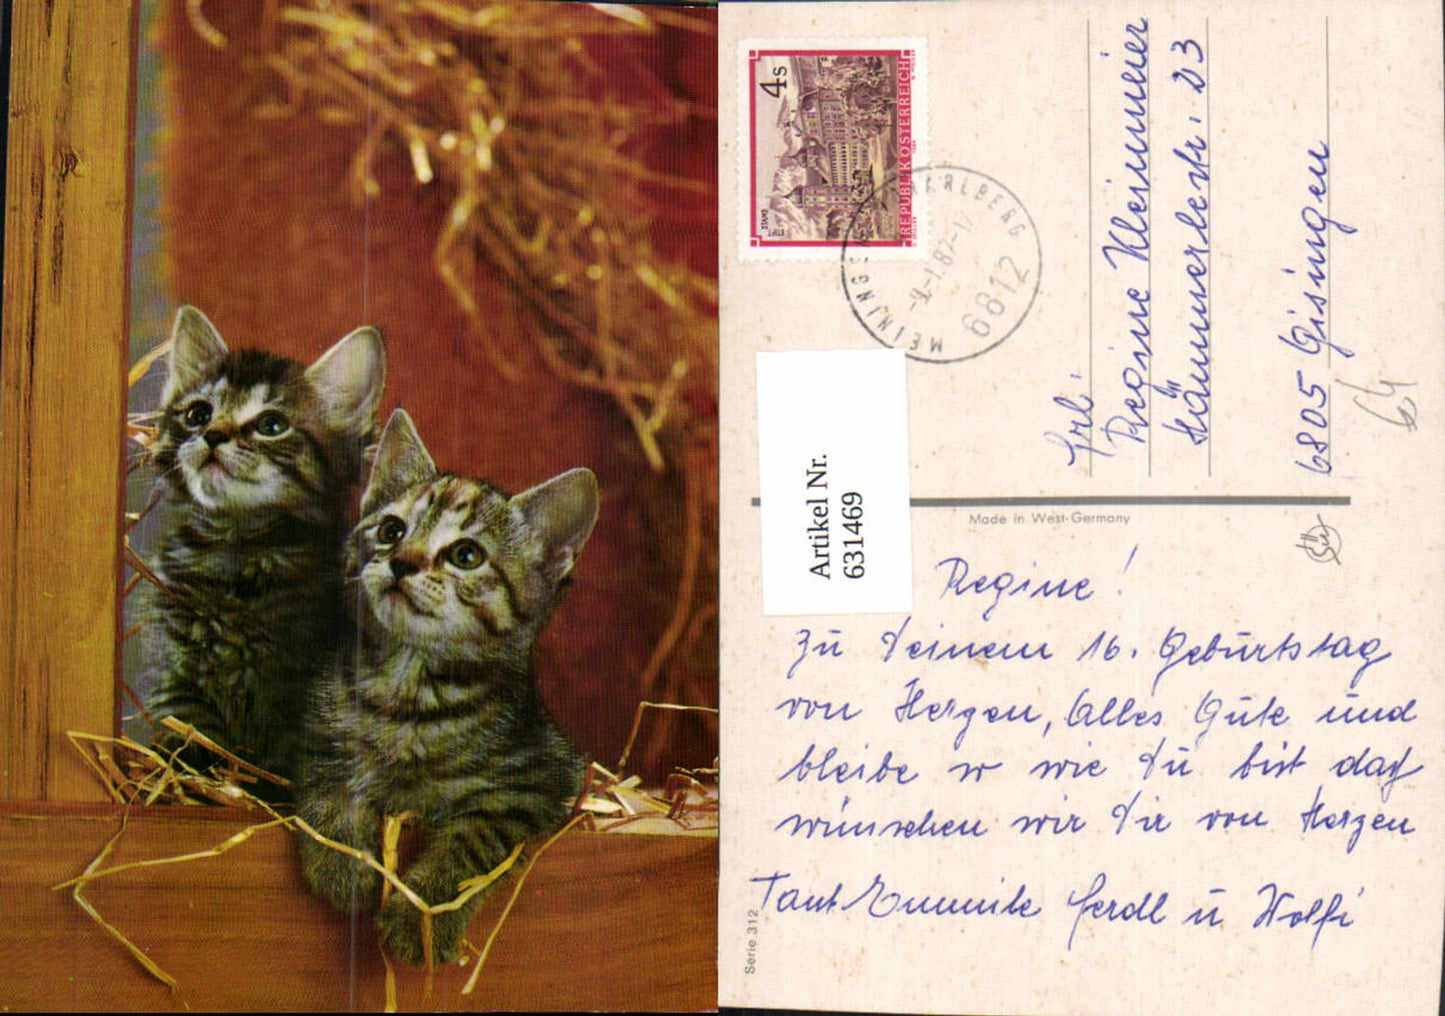 4 s
REPUBLIK ÖSTERREICH
STIFT
STAMS
6812
Frl.
Regine Kleinmeier
Hämmerlestr. 23
6805 Gisingen
Artikel Nr.
631469
Made in West-Germany
Regine!
Zu Deinem 16. Geburtstag
von Herzen, Alles Gute und
bleibe so wie Du bist das
wünschen wir Dir von Herzen
Tant Emmile Ferdl u Wolfi
Serie 312